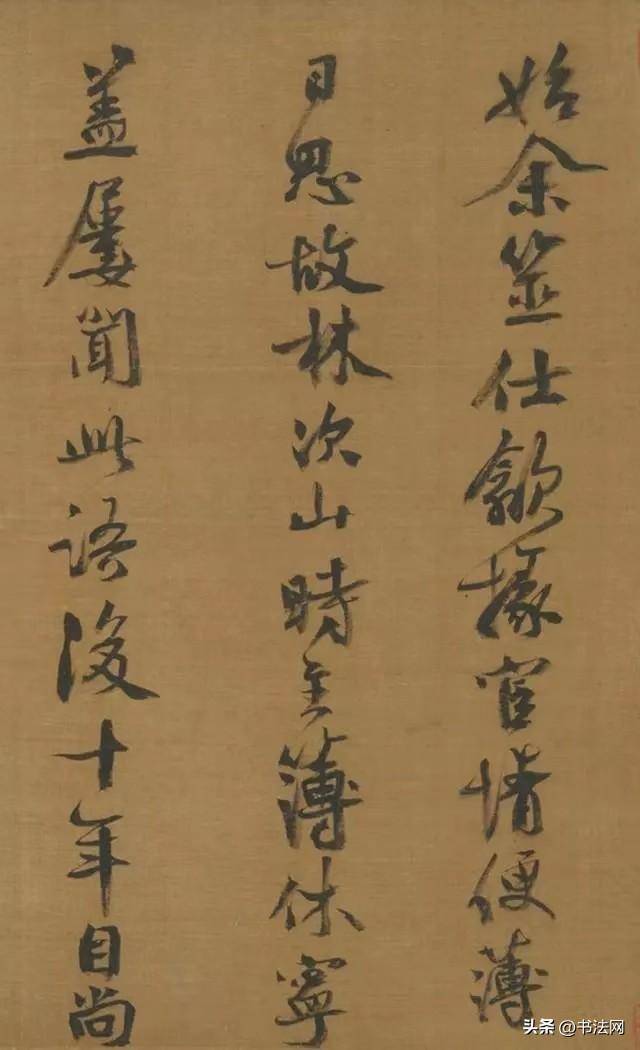 始余筮仕歙掾宦情便薄
日思故林次山時主簿休寧
盖屢聞此語後十年自尚
头条 @书法网